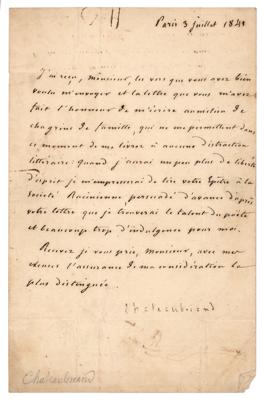 Paris 3 juillet 1841
J'ai reçu, monsieur, les vers que vous avez bien
voulu m'envoyer et la lettre que vous m'avez
fait l'honneur de m'écrire au milieu de
chagrins de famille, qui ne me permettent dans
ce moment de me livrer à aucune distraction
littéraire; quand j'aurai un peu plus de liberté
d'esprit je m'empresserai de lire votre Epître à la
Société Racinienne persuadé d'avance d'après
votre lettre que je trouverai le talent du poète
et beaucoup trop d'indulgence pour moi.
Recevez je vous prie, Monsieur, avec mes
excuses l'assurance de ma considération la
plus distinguée.
Chateaubriand
Chateaubriand